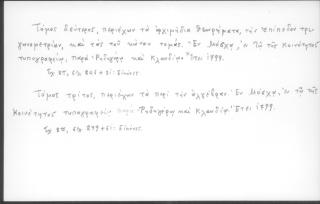 Τόμος δεύτερος, περιέχων τὰ ἀρχιμήδεια θεωρήματα, τὴν ἐπίπεδον τρι-
γωνομετρίαν, καὶ τὰς τοῦ κώνου τομάς. Ἐν Μόσχᾳ, ἐν τῷ τῆς Κοινότητος
τυπογραφείῳ, παρὰ Ῥυδηγέρῳ καὶ Κλαυδίῳ Ἔτει 1799.
Σχ 8ον, σελ.
Τόμος τρίτος, περιέχων τὰ περὶ τὴν ἄλγεβραν. Ἐν Μόσχᾳ, ἐν τῷ τῆς
Κοινότητος τυπογραφείῳ παρὰ Ῥυδηγέρῳ καὶ Κλαυδίῳ. Ἔτει 1799.
Σχ 8ον, σελ.